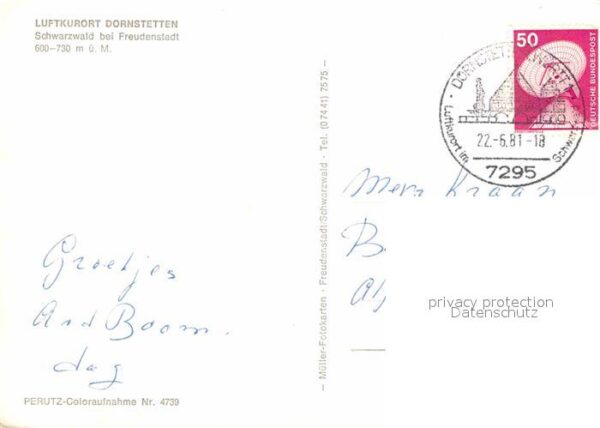 LUFTKURORT DORNSTETTEN
Schwarzwald bei Freudenstadt
600–730 m ü. M.
50
DEUTSCHE BUNDESPOST
DORNSTETTEN, WÜRTT
Luftkurort im Schwarz
22.-6.81-18
7295
— Müller-Fotokarten · Freudenstadt/Schwarzwald · Tel. (0 74 41) 7575 —
Mevr Kraan
B
Groetjes
And Boom.
dag
privacy protection
Datenschutz
PERUTZ-Coloraufnahme Nr. 4739